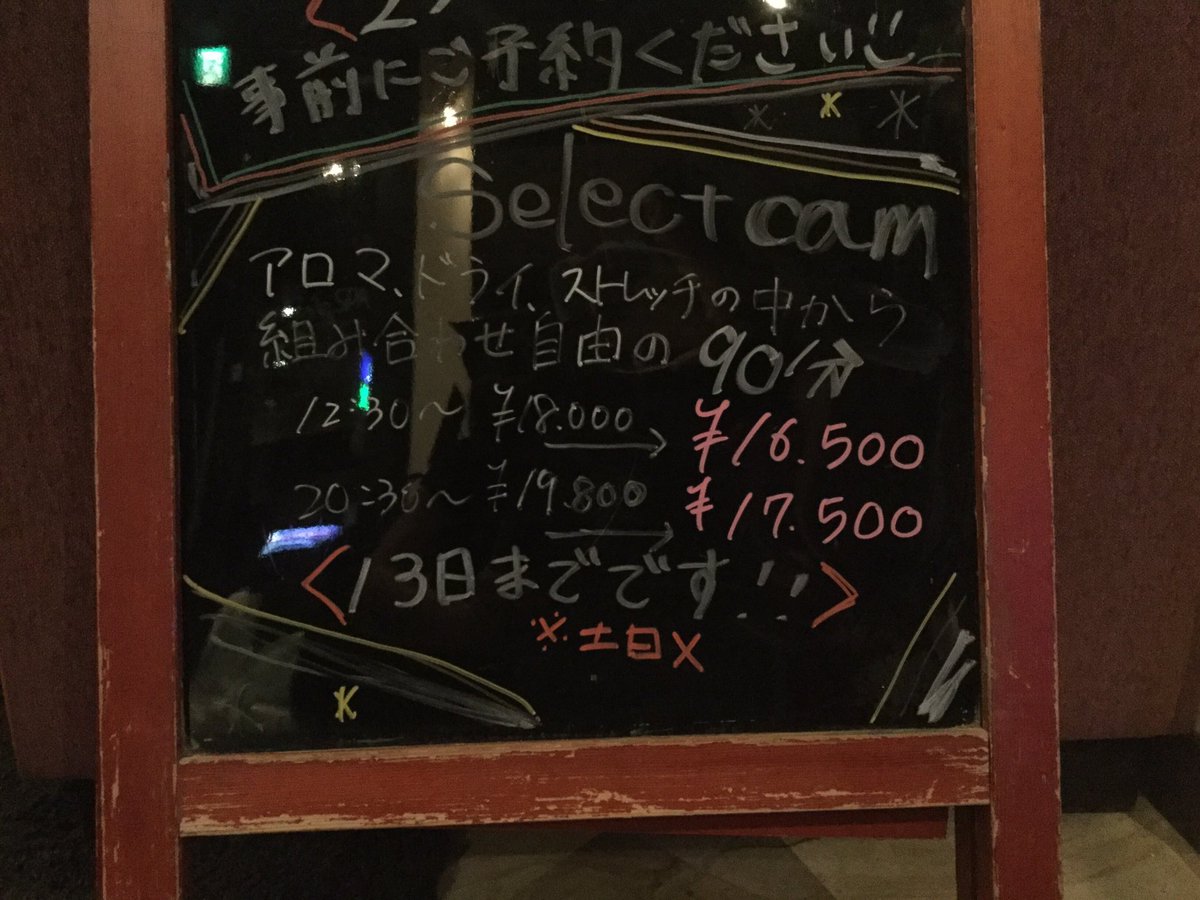 事前にご予約ください
Select cam
アロマ、ドライ、ストレッチの中から
組み合わせ自由の90分
12:30〜 ¥18.000 → ¥16.500
20:30〜 ¥19.800 → ¥17.500
<13日までです!!>
※土日X